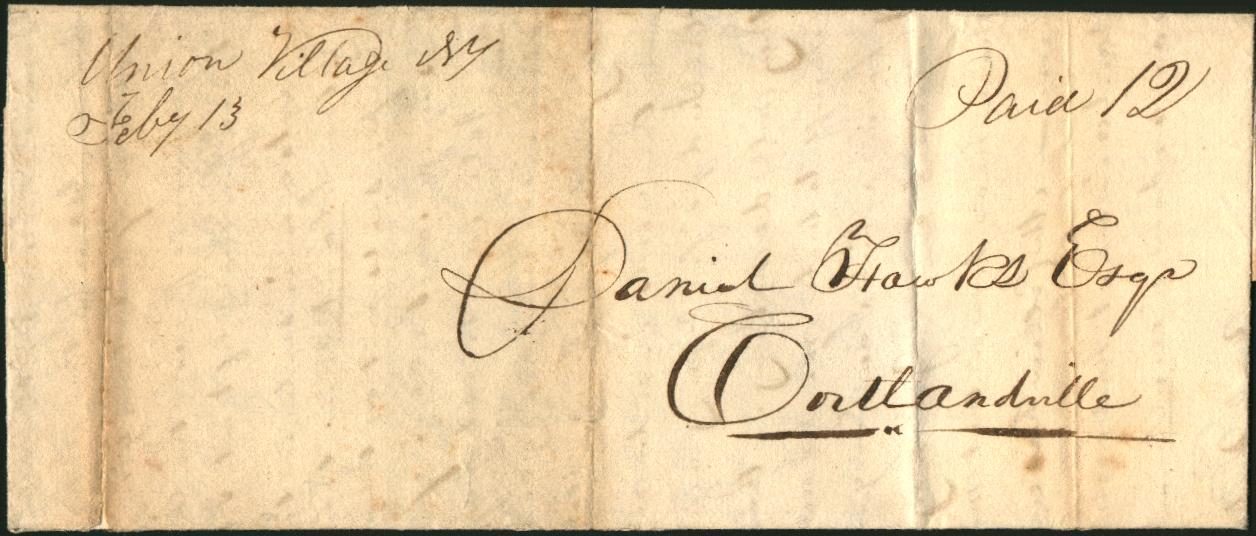 Union Village NY
Feby 13
Paid 12
Daniel Hawks Esqr
Cortlandville